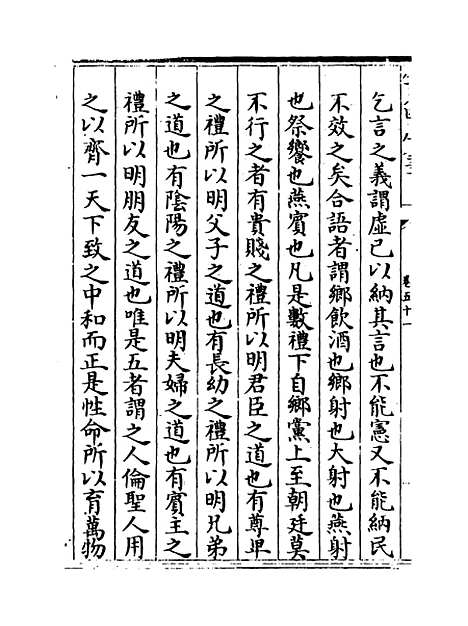 乞言之義謂虚已以納其言也不能憲又不能納民
不效之矣合語者謂鄉飲酒也鄉射也大射也燕射
也祭饗也燕賓也凡是數禮下自鄉黨上至朝廷莫
不行之者有貴賤之禮所以明君臣之道也有尊卑
之禮所以明父子之道也有長幼之禮所以明兄弟
之道也有陰陽之禮所以明夫婦之道也有賓主之
禮所以明朋友之道也唯是五者謂之人倫聖人用
之以齊一天下致之中和而正是性命所以育萬物
卷五十一